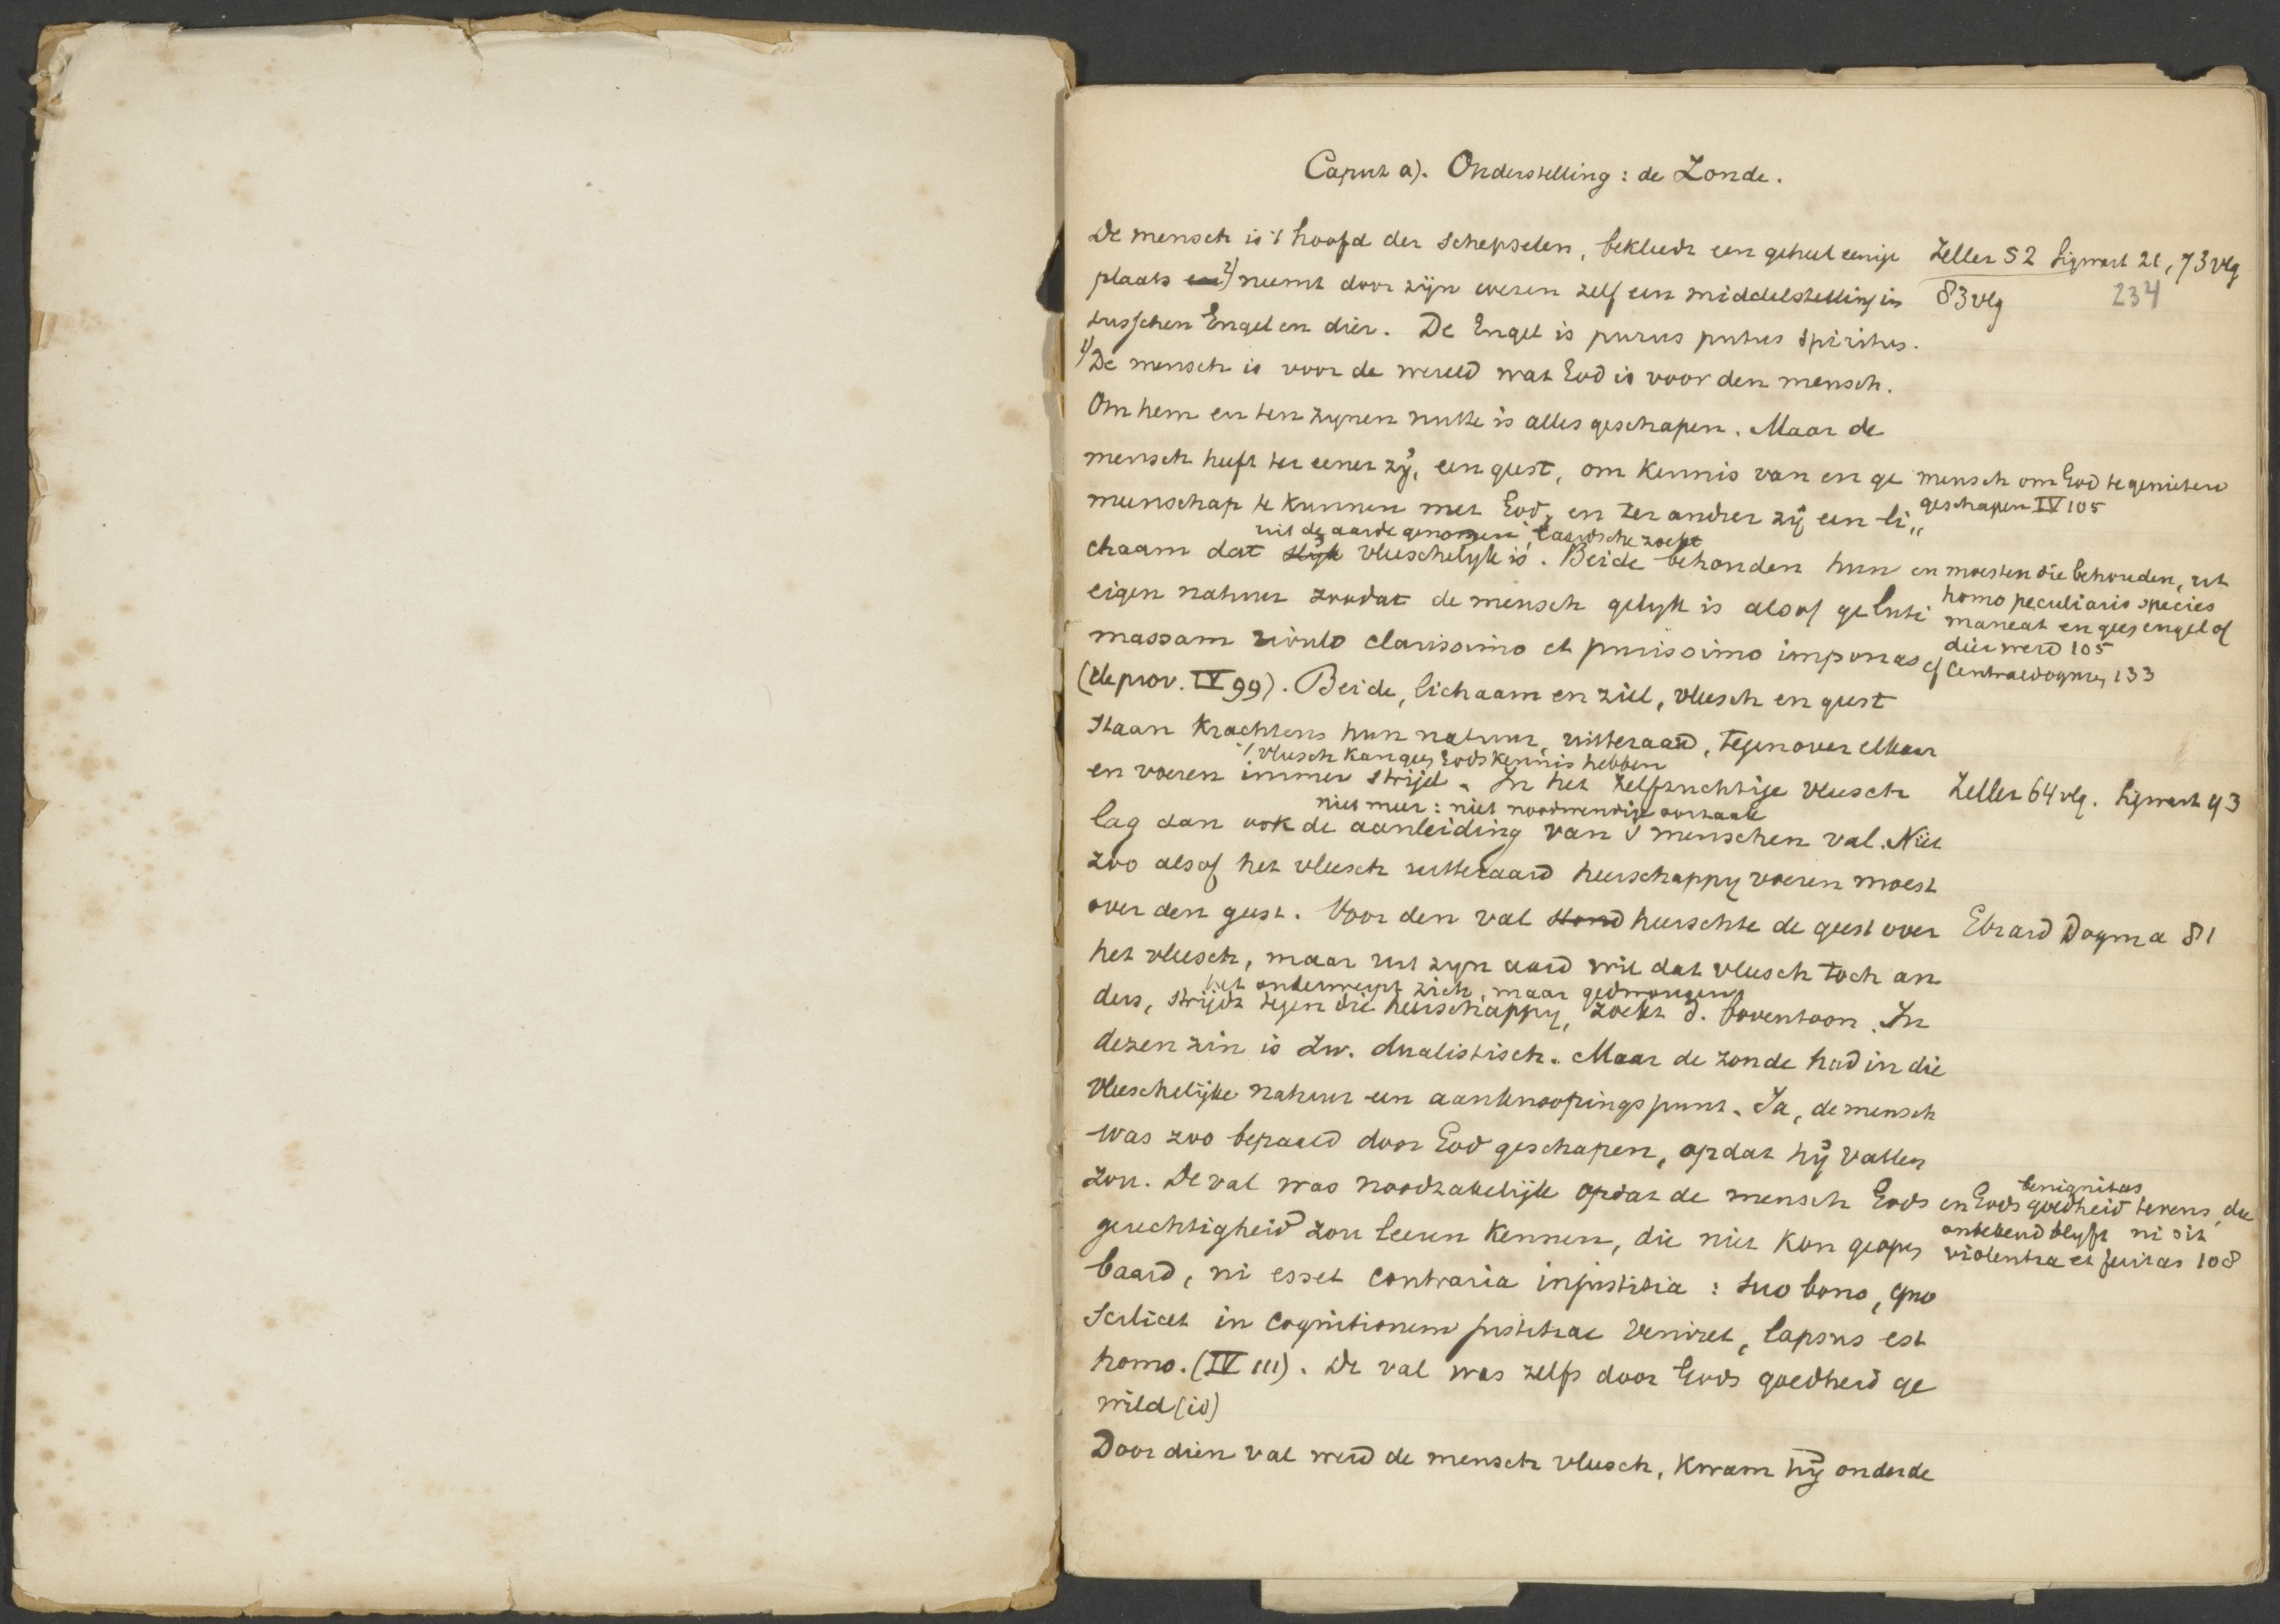 Caput a). Onderstelling: de Zonde.
De mensch is 't hoofd der schepselen, bekleedt een geheel eenige
Zeller 52 Sigwart 21, 73 vlg
plaats en 2) neemt door zijn wezen zelf een middelstelling in
83 vlg
234
tusschen Engel en dier. De Engel is purus putus spiritus.
1) De mensch is voor de wereld wat God is voor den mensch.
Om hem en ten zynen nutte is alles geschapen. Maar de
mensch heeft ter eener zij, een geest, om kennis van en ge
mensch om God te genieten
meenschap te kunnen met God, en ter andrer zij een li„
geschapen IV 105
uit de aarde genomen, 't aardsche zoekt
chaam dat slijk vleeschelyk is. Beide behouden hun
en moesten die behouden, ut
eigen natuur zoodat de mensch gelyk is alsof ge luti
homo peculiaris species
maneat en geen engel of
massam rivulo clarissimo et purissimo imponas
dier werd 105
cf Centraldogmen 133
(de prov. IV 99). Beide, lichaam en ziel, vleesch en geest
staan krachtens hun natuur, uitteraard, tegenover elkaar
't vleesch kan geen Godskennis hebben
en voeren immer strijd. In het zelfzuchtige vleesch
Zeller 64 vlg. Sigwart 93
niet meer: niet noodwendige oorzaak
lag dan ook de aanleiding van 's menschen val. Niet
zoo alsof het vleesch uitteraard heerschappy voeren moest
over den geest. Voor den val stond heerschte de geest over
Ebrard Dogma 81
het vleesch, maar uit zyn aard wil dat vleesch toch an
het onderwerpt zich, maar gedwongen
ders, strijdt tegen die heerschappy, zoekt d. boventoon. In
dezen zin is Zw. dualistisch. Maar de zonde had in die
vleeschelijke natuur een aanknoopingspunt. Ja, de mensch
was zoo bepaald door God geschapen, opdat hij vallen
zou. De val was noodzakelijk opdat de mensch Gods
benignitas
en Gods goedheid tevens, die
gerechtigheid zou leeren kennen, die niet kon geopen
onbekend blyft ni sit
violentia et feritas 108
baard, ni esset contraria injustitia: suo bono, quo
scilicet in cognitionem justitiae veniret, lapsus est
homo. (IV 111). De val was zelfs door Gods goedheid ge
wild (id)
Door dien val werd de mensch vleesch, kwam hij onder de